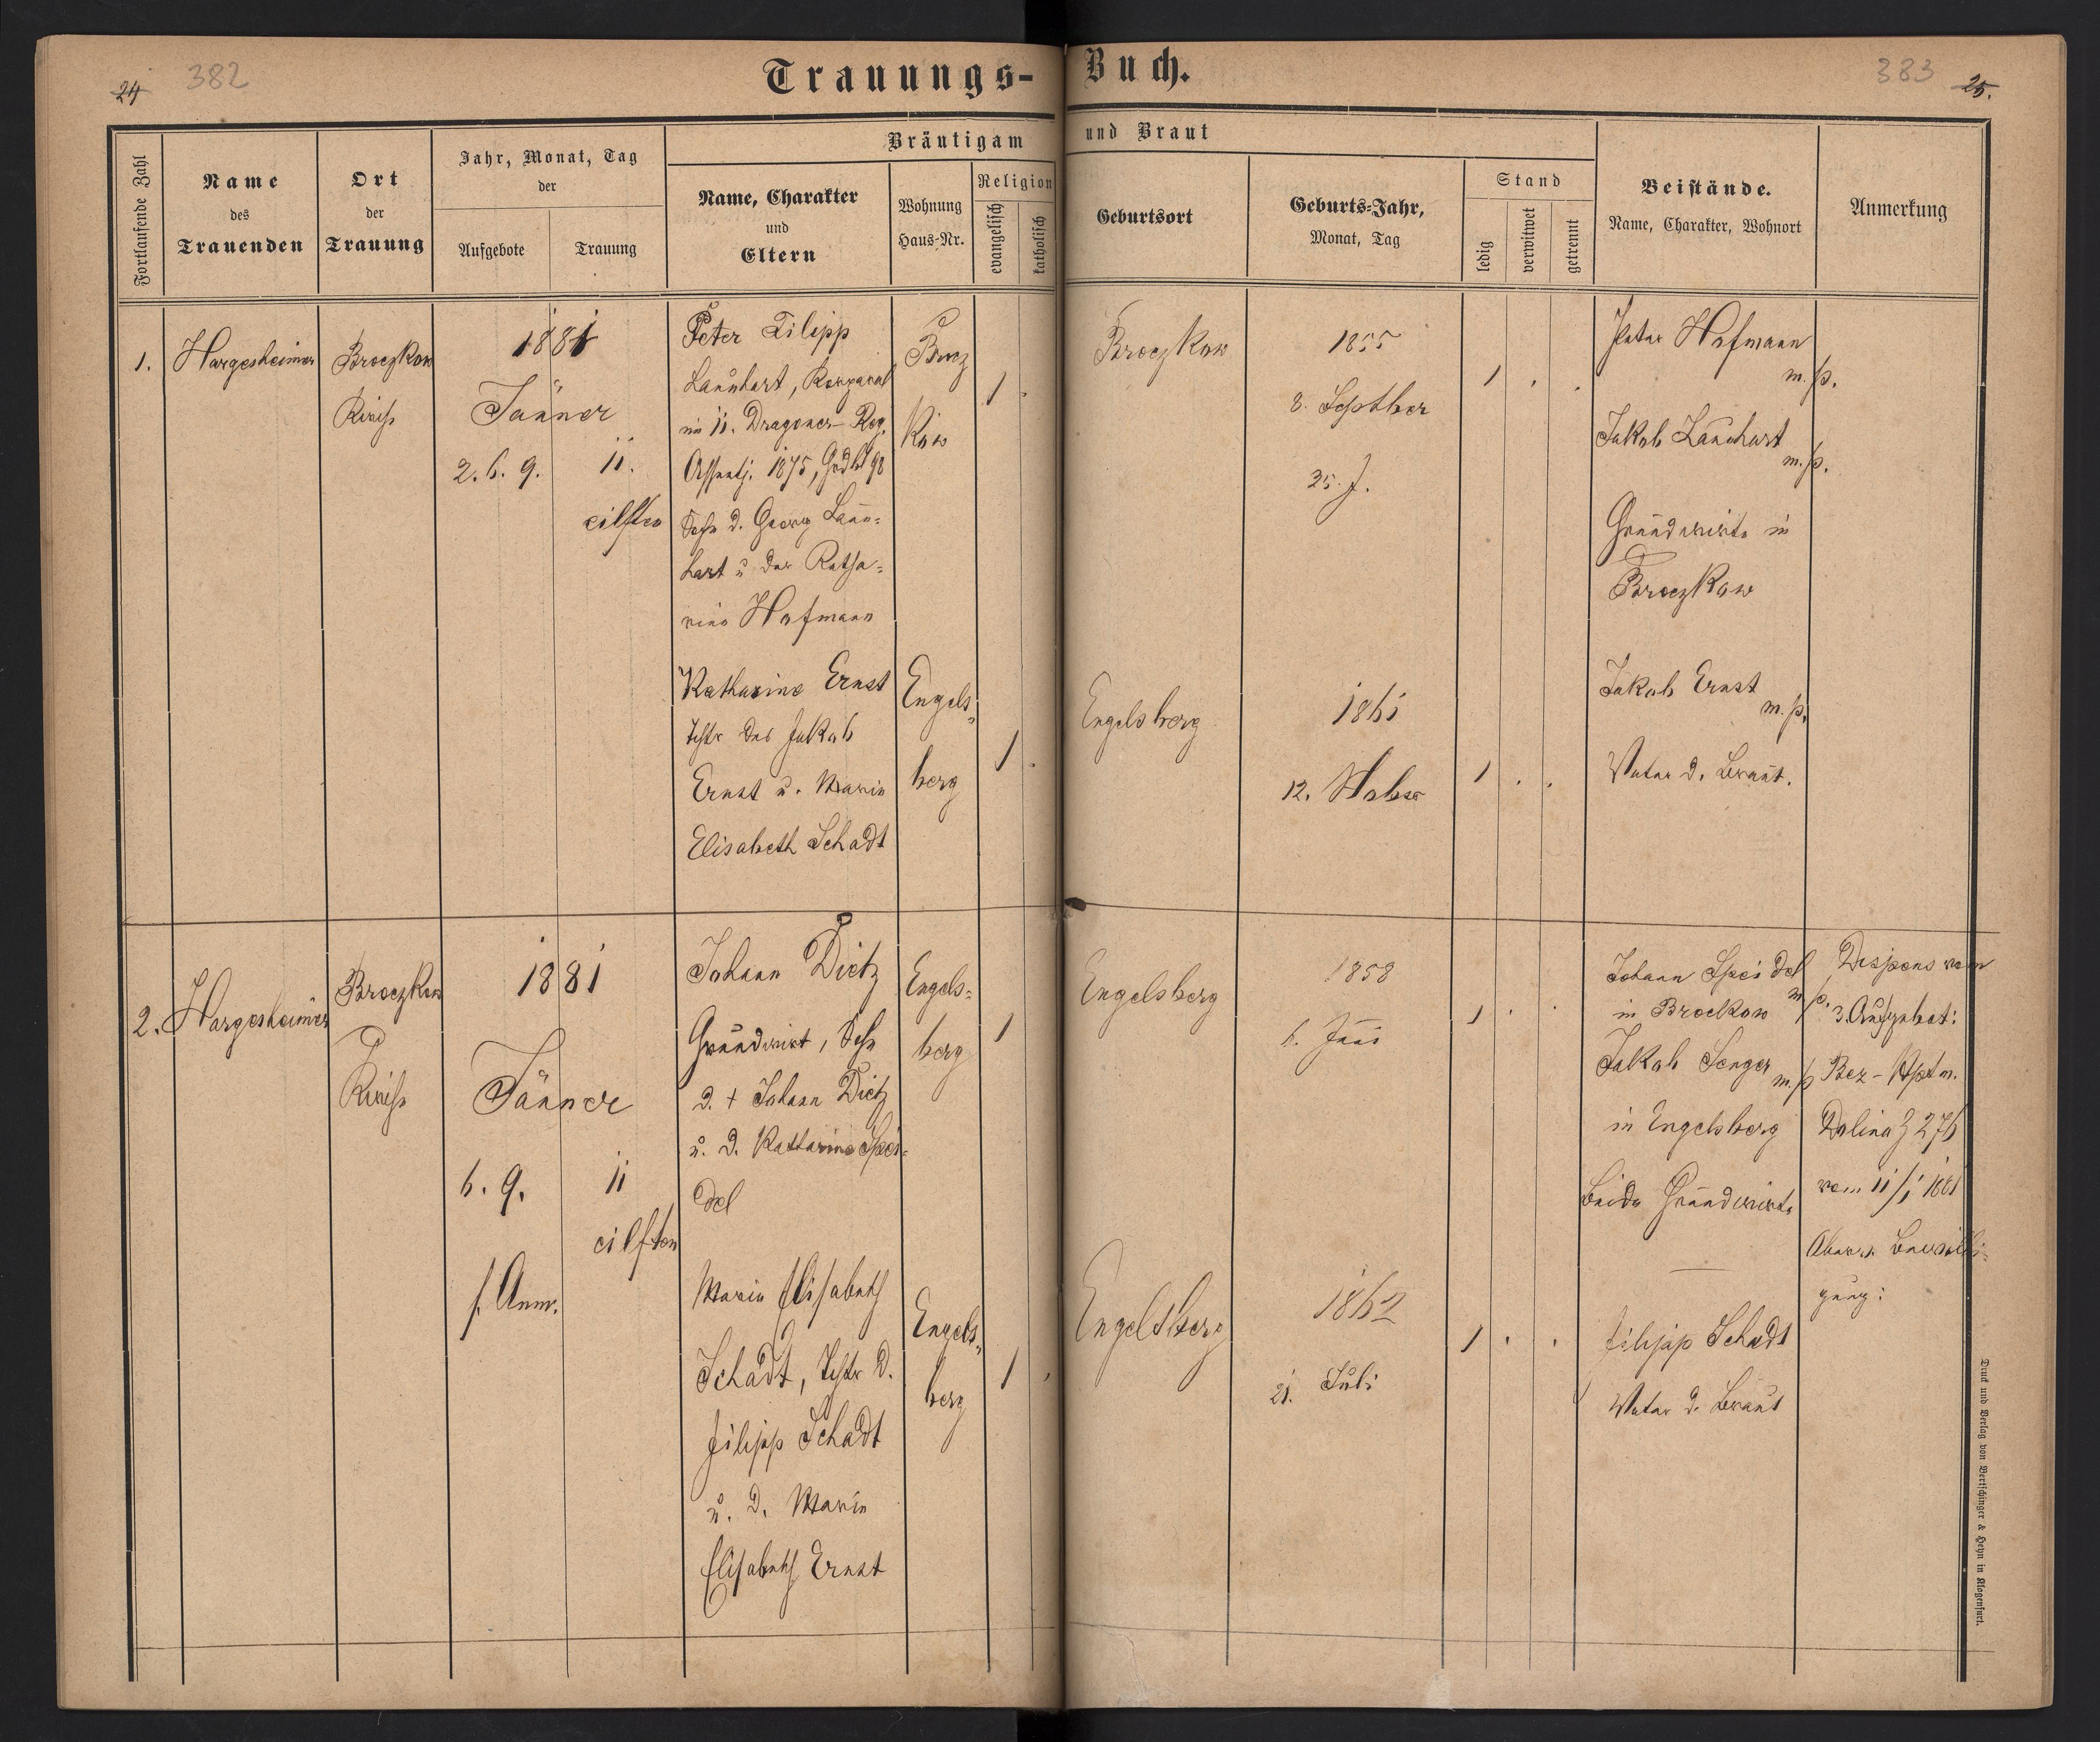 24
382
Trauungs-Buch.
383
25.
Fortlaufende Zahl
Name
des
Trauenden
Ort
der
Trauung
Jahr, Monat, Tag
der
Aufgebote
Trauung
Bräutigam und Braut
Name, Charakter
und
Eltern
Wohnung
Haus-Nr.
Religion
evangelisch
katholisch
Geburtsort
Geburts-Jahr,
Monat, Tag
Stand
ledig
verwitwet
getrennt
Beistände.
Name, Charakter, Wohnort
Anmerkung
1.
Hargesheimer
Broczkow
Kirche
1881
Jänner
2. 6. 9.
11.
eilften
Peter Filipp
Launhart, Korporal
im 11. Dragoner-Reg.
Assentj. 1875, Gdbl 98
Sohn d. Georg Laun-
hart u der Katha-
rina Hofmann
Brocz
Kow
1
Broczkow
1855
8. Septber
25. J.
1
Peter Hofmann
m.p.
Jakob Launhart
m.p.
Grundwirte in
Broczkow
Katharina Ernst
Tchtr des Jakob
Ernst u. Maria
Elisabeth Schadt
Engels-
berg
1
Engelsberg
1861
12.
1
Jakob Ernst
m.p.
Vater d. Braut.
2.
Hargesheimer
Broczkow
Kirche
1881
Jänner
6. 9.
11
eilften
s. Anm.
Johann Dietz
Grundwirt, Sohn
d. + Johann Dietz
u. d. Katharina Spei-
del
Engels-
berg
1
Engelsberg
1858
6. Juni
1
Johann Speidel
m.p.
in Brockow
Jakob Senger
m.p
in Engelsberg
beide Grundwirte
Dispens vom
3. Aufgebot:
Bez-Hptm.
Dolina Z 276
vom 11/1 1881
Bewilli-
gung:
Maria Elisabeth
Schadt, Tchtr d.
Filipp Schadt
u. d. Maria
Elisabeth Ernst
Engels-
berg
1
Engelsberg
1862
21. Juli
1
Filipp Schadt
Vater d. Braut
Druck und Verlag von Bertschinger & Heyn in Klagenfurt.